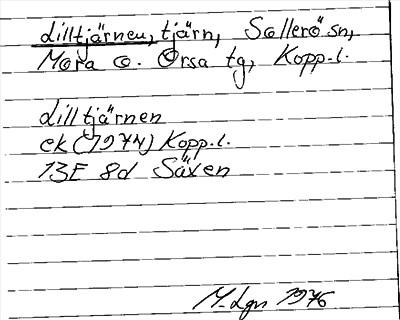 Lilltjärnen, tjärn, Sollerö sn,
Mora o. Orsa tg, Kopp. l.
Lilltjärnen
ek (1974) Kopp. l.
13E 8d Säxen
M. Lgn 1976